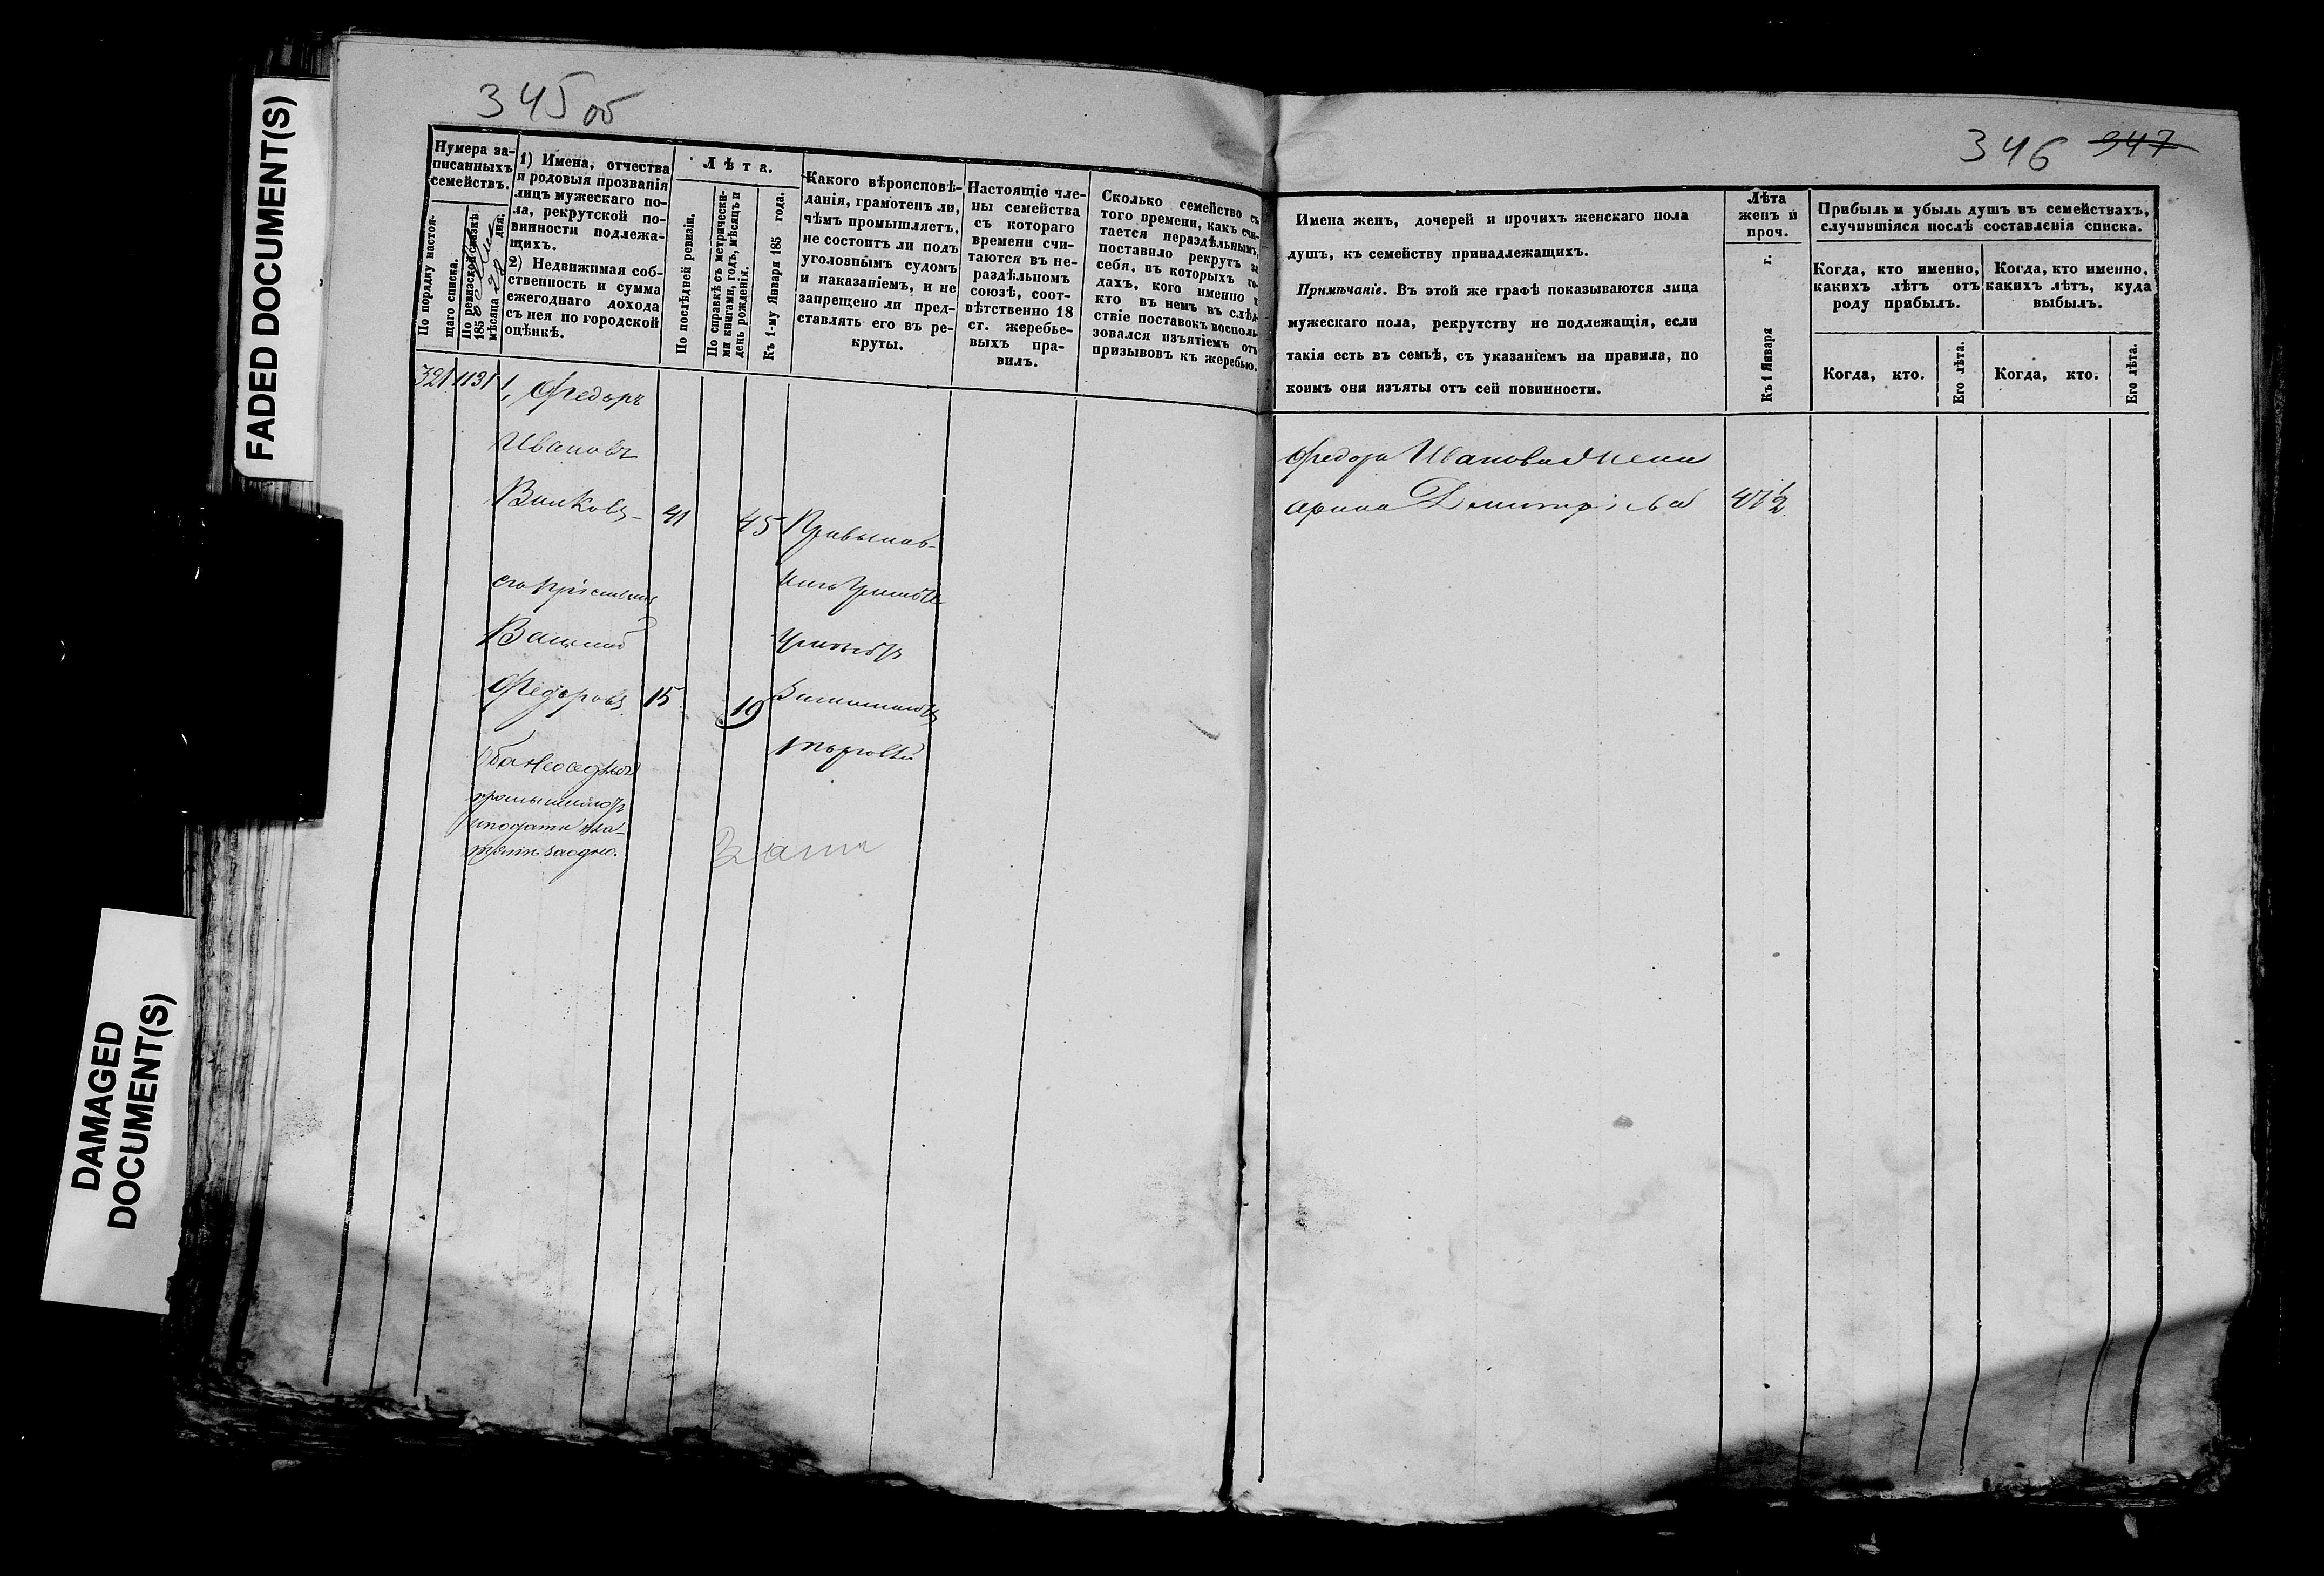 FADED DOCUMENT(S)
DAMAGED
DOCUMENT(S)
345 об
Нумера за-
писанныхъ
семействъ.
По порядку настоя-
щаго списка.
По ревизской сказкѣ
185
мѣсяца 28 дня.
1) Имена, отчества
и родовыя прозванія
лицъ мужескаго по-
ла, рекрутской по-
винности подлежа-
щихъ.
2) Недвижимая соб-
ственность и сумма
ежегоднаго дохода
съ нея по городской
оцѣнкѣ.
Лѣта.
По послѣдней ревизіи.
По справкѣ съ метрически-
ми книгами, годъ, мѣсяцъ и
день рожденія.
Къ 1-му Января 185 года.
Какого вѣроисповѣ-
данія, грамотенъ ли,
чѣмъ промышляетъ,
не состоитъ ли подъ
уголовнымъ судомъ
и наказаніемъ, и не
запрещено ли пред-
ставлять его въ ре-
круты.
Настоящіе чле-
ны семейства
съ котораго
времени счи-
таются въ не-
раздѣльном
союзѣ, соот-
вѣтственно 18
ст. жеребье-
выхъ пра-
вилъ.
Сколько семейство съ
того времени, какъ счи-
тается нераздѣльнымъ,
поставило рекрутъ за
себя, въ которыхъ го-
дахъ, кого именно и
кто въ немъ въ слѣд-
ствіе поставокъ восполь-
зовался изъятіемъ отъ
призывовъ къ жеребью.
321 1131 1, Федоръ
Ивановъ
Волковъ 41 45
его
Василий
Федоровъ 15 19
оба
заодно.
346 347
Имена женъ, дочерей и прочихъ женскаго пола
душъ, къ семейству принадлежащихъ.
Примѣчаніе. Въ этой же графѣ показываются лица
мужескаго пола, рекрутству не подлежащія, если
такія есть въ семьѣ, съ указаніемъ на правила, по
коимъ они изъяты отъ сей повинности.
Лѣта
женъ и
проч.
Къ 1 Января г.
Прибыль и убыль душъ въ семействахъ,
случившіяся послѣ составленія списка.
Когда, кто именно,
какихъ лѣтъ отъ
роду прибылъ.
Когда, кто именно,
какихъ лѣтъ, куда
выбылъ.
Когда, кто.
Его лѣта.
Когда, кто.
Его лѣта.
Федора Иванова жена
Арина Дмитріева